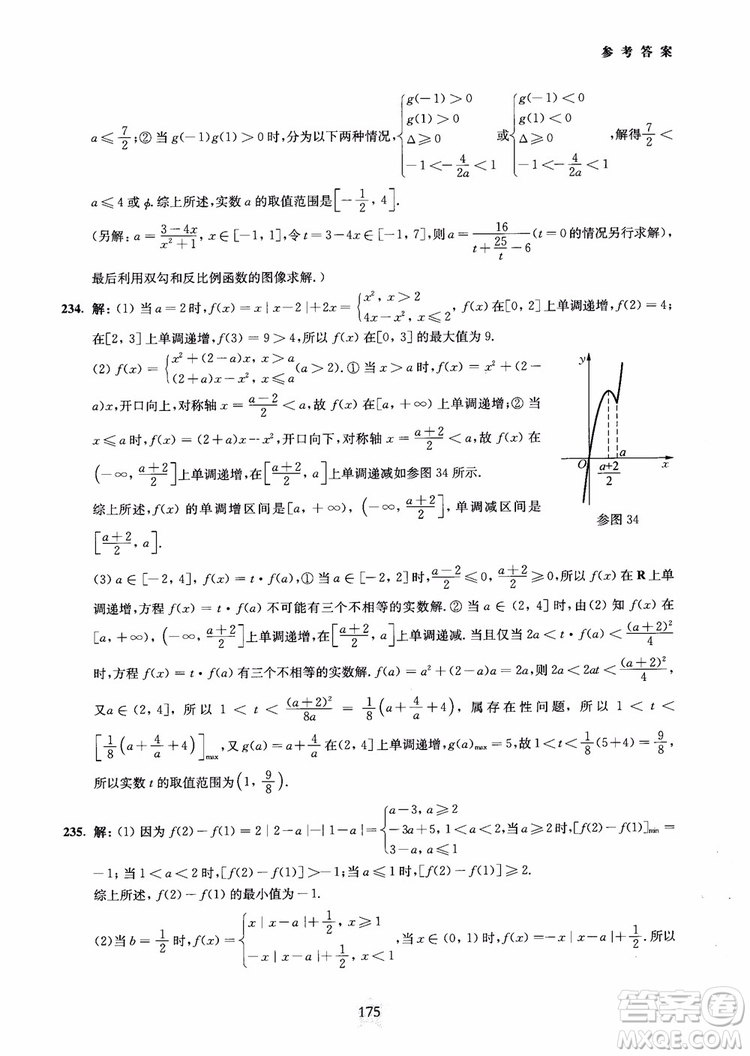 参 考 答 案
a≤7/2;② 当 g(-1)g(1)>0时,分为以下两种情况,{g(-1)>0 g(1)>0 Δ≥0 -1<-4/2a<1 或{g(-1)<0 g(1)<0 Δ≥0 -1<-4/2a<1 ,解得7/2<
a≤4或φ.综上所述,实数 a 的取值范围是[-1/2, 4].
(另解:a=(3-4x)/(x²+1), x∈[-1, 1],令 t=3-4x∈[-1, 7],则 a=16/(t+25/t-6)(t=0 的情况另行求解),
最后利用双勾和反比例函数的图像求解.)
234. 解:(1) 当 a=2 时,f(x)=x|x-2|+2x={x², x>2 4x-x², x≤2 在[0, 2]上单调递增,f(2)=4;
在[2, 3]上单调递增,f(3)=9>4,所以 f(x)在[0, 3]的最大值为 9.
(2) f(x)={x²+(2-a)x, x>a (2+a)x-x², x≤a (a>2).① 当 x>a 时,f(x)=x²+(2-
a)x,开口向上,对称轴 x=(a-2)/2<a,故 f(x)在(a, +∞)上单调递增;② 当
x≤a 时,f(x)=(2+a)x-x²,开口向下,对称轴 x=(a+2)/2<a,故 f(x)在
(-∞, (a+2)/2]上单调递增,在[(a+2)/2, a]上单调递减如参图 34 所示.
综上所述,f(x)的单调增区间是[a, +∞), (-∞, (a+2)/2],单调减区间是
[(a+2)/2, a].
y
O
(a+2)/2
a
x
参图 34
(3) a∈[-2, 4],f(x)=t·f(a),① 当 a∈[-2, 2]时,(a-2)/2≤0, (a+2)/2≥0,所以 f(x)在 R 上单
调递增,方程 f(x)=t·f(a)不可能有三个不相等的实数解.② 当 a∈(2, 4]时,由(2) 知 f(x)在
[a, +∞), (-∞, (a+2)/2]上单调递增,在[(a+2)/2, a]上单调递减.当且仅当 2a<t·f(a)<(a+2)²/4
时,方程 f(x)=t·f(a)有三个不相等的实数解.f(a)=a²+(2-a)a=2a,则 2a<2at<(a+2)²/4,
又a∈(2, 4],所以 1<t<(a+2)²/8a=1/8(a+4/a+4),属存在性问题,所以 1<t<
[1/8(a+4/a+4)]max,又 g(a)=a+4/a 在(2, 4]上单调递增,g(a)max=5,故 1<t<1/8(5+4)=9/8,
所以实数 t 的取值范围为(1, 9/8).
235. 解:(1) 因为 f(2)-f(1)=2|2-a|-|1-a|={a-3, a≥2 -3a+5, 1<a<2, 所以当 a≥2 时,[f(2)-f(1)]min= 3-a, a≤1
-1;当 1<a<2时,[f(2)-f(1)]>-1;当 a≤1时,[f(2)-f(1)]≥2.
综上所述,f(2)-f(1)的最小值为-1.
(2)当 b=1/2 时,f(x)={x|x-a|+1/2, x≥1 -x|x-a|+1/2, x<1 .当 x∈(0, 1)时,f(x)=-x|x-a|+1/2.所以
175
答案圈
MXQE.COM